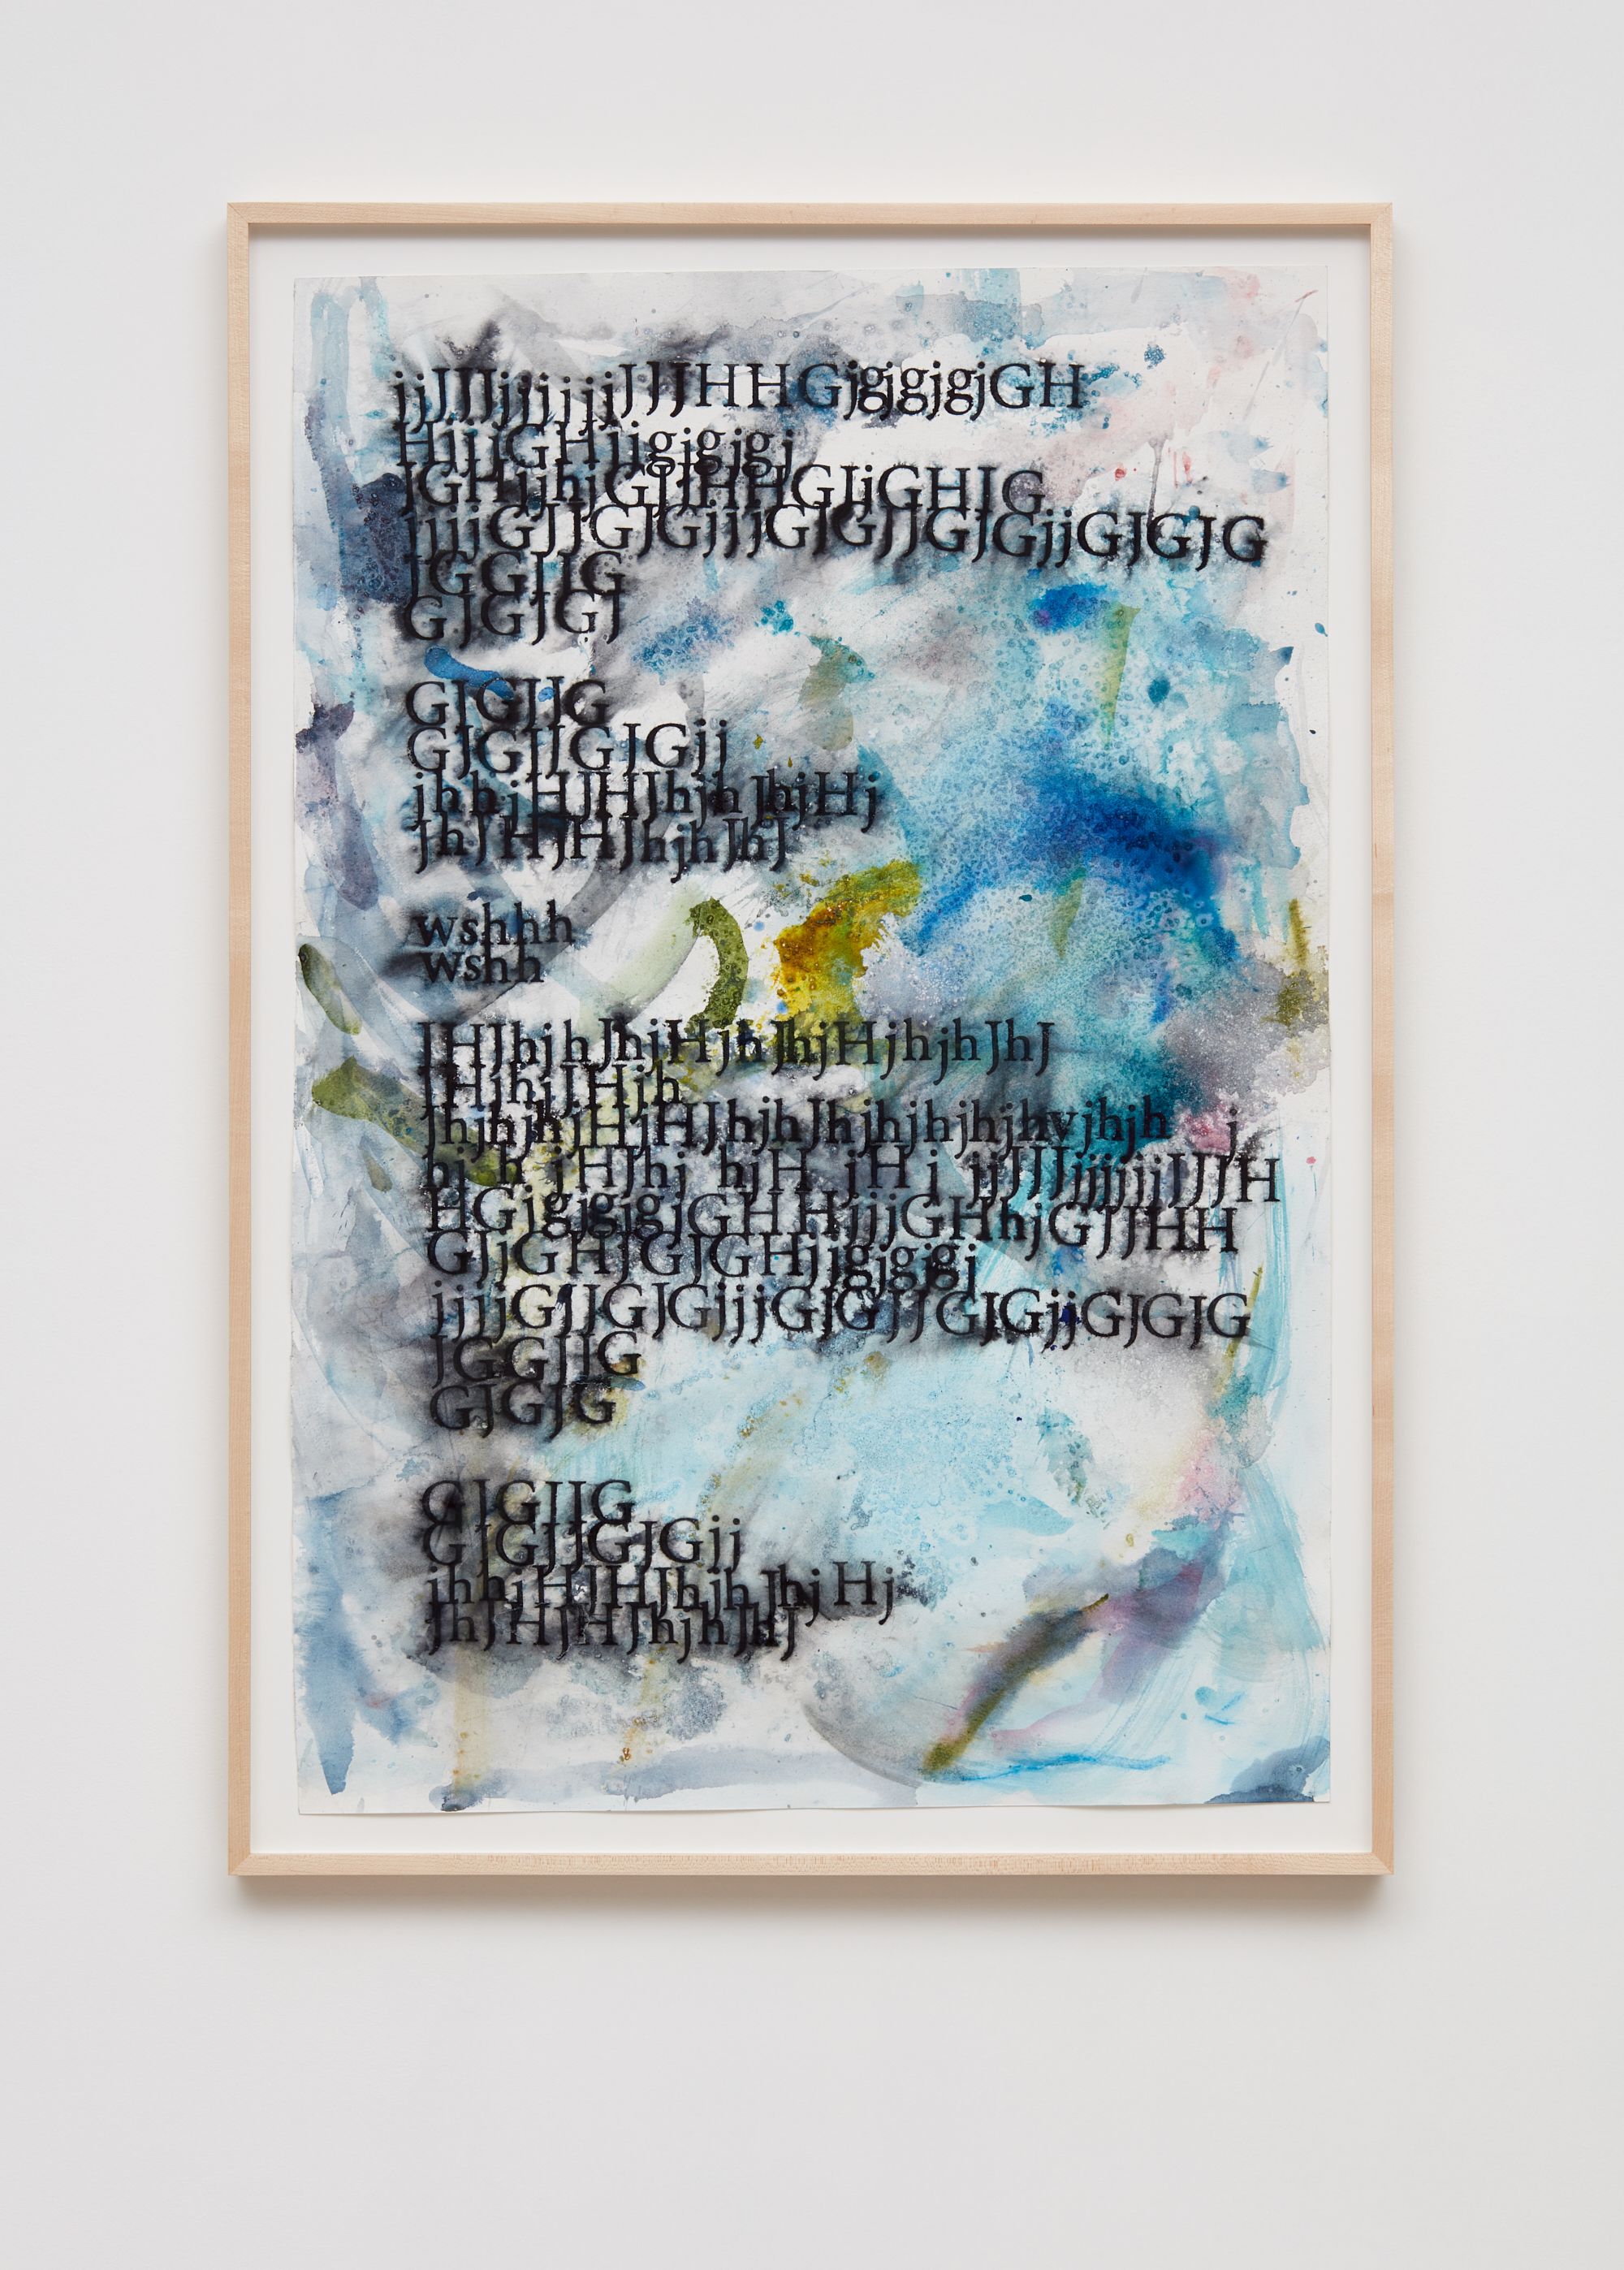 jjJJJjjjjjjjJJJHHGjgjgjgjGH
HjjjGHjjgjgjgj
JGHjjhjGJJHHGJjGHJG
jjjjGJJGJGjjjGJGJJGJGjjGJGJG
JGGJJG
GJGJGJ
GJGJJG
GJGJJGJGjj
jhhjHJHJhjhJhjHj
JhJHJHJhjhJhJ
wshhh
wshh
JHJhjhJhjHjhJhjHjhjhJhJ
JHjhjJHjh
JhjhjhjHjHJhjhJhjhjhjhjhvjhjh j
hj h jHJhj hjH jH j jjJJJjjjjjjJJJH
HGjgjgjgjGHHjjjGHhjGJJHH
GJjGHJGJGHjjgjgjgj
jjjjGJJGJGjjjGJGJJGJGjjGJGJG
JGGJJG
GJGJG
GJGJJG
GJGJJGJGjj
jhhjHJHJhjhJhjHj
JhJHJHJhjhJHJ